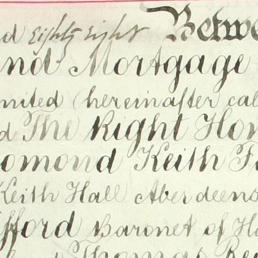 nd Eighty Eight Betwe
and Mortgage
mited (hereinafter cal
d The Right Hon
omond Keith F
Keith Hall Aberdeens
fford Baronet of H
Thomas Re